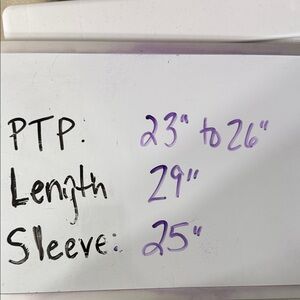 PTP: 23" to 26"
Length 29"
Sleeve: 25"